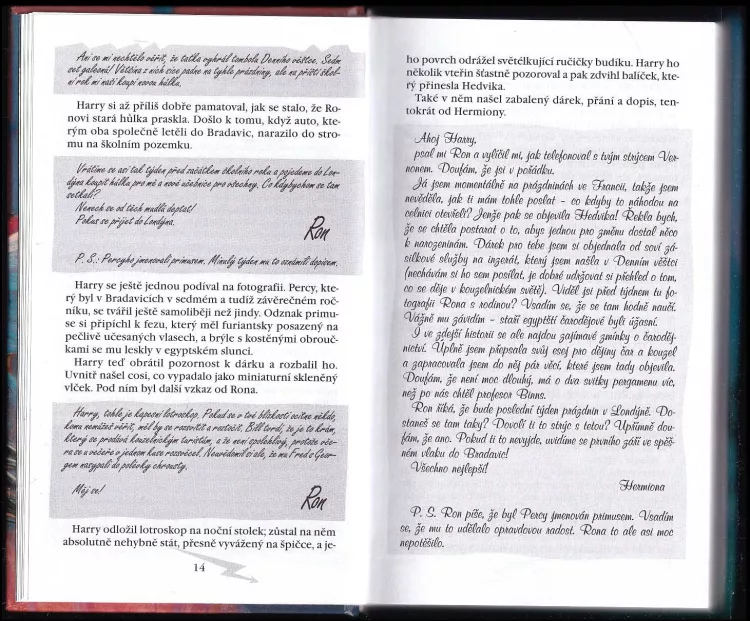 Ani se mi nechtělo věřit, že taťka vyhrál tombolu Denního věštce. Sedm
set galeonů! Většina z nich sice padne na tyhle prázdniny, ale na příští škol-
ní rok mi naši koupí novou hůlku.
Harry si až příliš dobře pamatoval, jak se stalo, že Ro-
novi stará hůlka praskla. Došlo k tomu, když auto, kte-
rým oba společně letěli do Bradavic, narazilo do stro-
mu na školním pozemku.
Vrátíme se asi tak týden před začátkem školního roku a pojedeme do Lon-
dýna koupit hůlku pro mě a nové učebnice pro všechny. Co kdybychom se tam
setkali?
Nenech se od těch mudlů deptat!
Pokus se přijet do Londýna.
Ron
P. S.: Percyho jmenovali primusem. Minulý týden mu to oznámili dopisem.
Harry se ještě jednou podíval na fotografii. Percy, kte-
rý byl v Bradavicích v sedmém a tudíž závěrečném roč-
níku, se tvářil ještě samoliběji než jindy. Odznak primu-
se si připíchl k fezu, který měl furiantsky posazený na
pečlivě učesaných vlasech, a brýle s kostěnými obrouč-
kami se mu leskly v egyptském slunci.
Harry teď obrátil pozornost k dárku a rozbalil ho.
Uvnitř našel cosi, co vypadalo jako miniaturní skleněný
vlček. Pod ním byl další vzkaz od Rona.
Harry, tohle je kapesní lotroskop. Pokud se v tvé blízkosti ocitne někdo,
komu nemůžeš věřit, měl by se rozsvítit a roztočit. Bill tvrdí, že je to krám,
který se prodává kouzelnickým turistům, a že není spolehlivý, protože vče-
ra se u večeře v jednom kuse rozsvěcel. Neuvědomil si ale, že mu Fred s Geor-
gem nasypali do polévky chrousty.
Měj se!
Ron
Harry odložil lotroskop na noční stolek; zůstal na něm
absolutně nehybně stát, přesně vyvážený na špičce, a je-
14
ho povrch odrážel světélkující ručičky budíku. Harry ho
několik vteřin šťastně pozoroval a pak zdvihl balíček, kte-
rý přinesla Hedvika.
Také v něm našel zabalený dárek, přání a dopis, ten-
tokrát od Hermiony.
Ahoj Harry,
psal mi Ron a vylíčil mi, jak telefonoval s tvým strýcem Ver-
nonem. Doufám, že jsi v pořádku.
Já jsem momentálně na prázdninách ve Francii, takže jsem
nevěděla, jak ti mám tohle poslat – co kdyby to náhodou na
celnici otevřeli? Jenže pak se objevila Hedvika! Řekla bych,
že se chtěla postarat o to, abys jednou pro změnu dostal něco
k narozeninám. Dárek pro tebe jsem si objednala od soví zá-
silkové služby na inzerát, který jsem našla v Denním věštci
(nechávám si ho sem posílat, je dobré udržovat si přehled o tom,
co se děje v kouzelnickém světě). Viděl jsi před týdnem tu fo-
tografii Rona s rodinou? Vsadím se, že se tam hodně naučí.
Vážně mu závidím – staří egyptští čarodějové byli úžasní.
I ve zdejší historii se ale najdou zajímavé zmínky o čaroděj-
nictví. Úplně jsem přepsala svůj esej pro dějiny čar a kouzel
a zapracovala jsem do něj pár věcí, které jsem tady objevila.
Doufám, že není moc dlouhý, má o dva svitky pergamenu víc,
než po nás chtěl profesor Binns.
Ron říká, že bude poslední týden prázdnin v Londýně. Do-
staneš se tam taky? Dovolí ti to strýc s tetou? Upřímně dou-
fám, že ano. Pokud ti to nevyjde, uvidíme se prvního září ve spěš-
ném vlaku do Bradavic!
Všechno nejlepší!
Hermiona
P. S. Ron píše, že byl Percy jmenován primusem. Vsadím
se, že mu to udělalo opravdovou radost. Rona to ale asi moc
nepotěšilo.